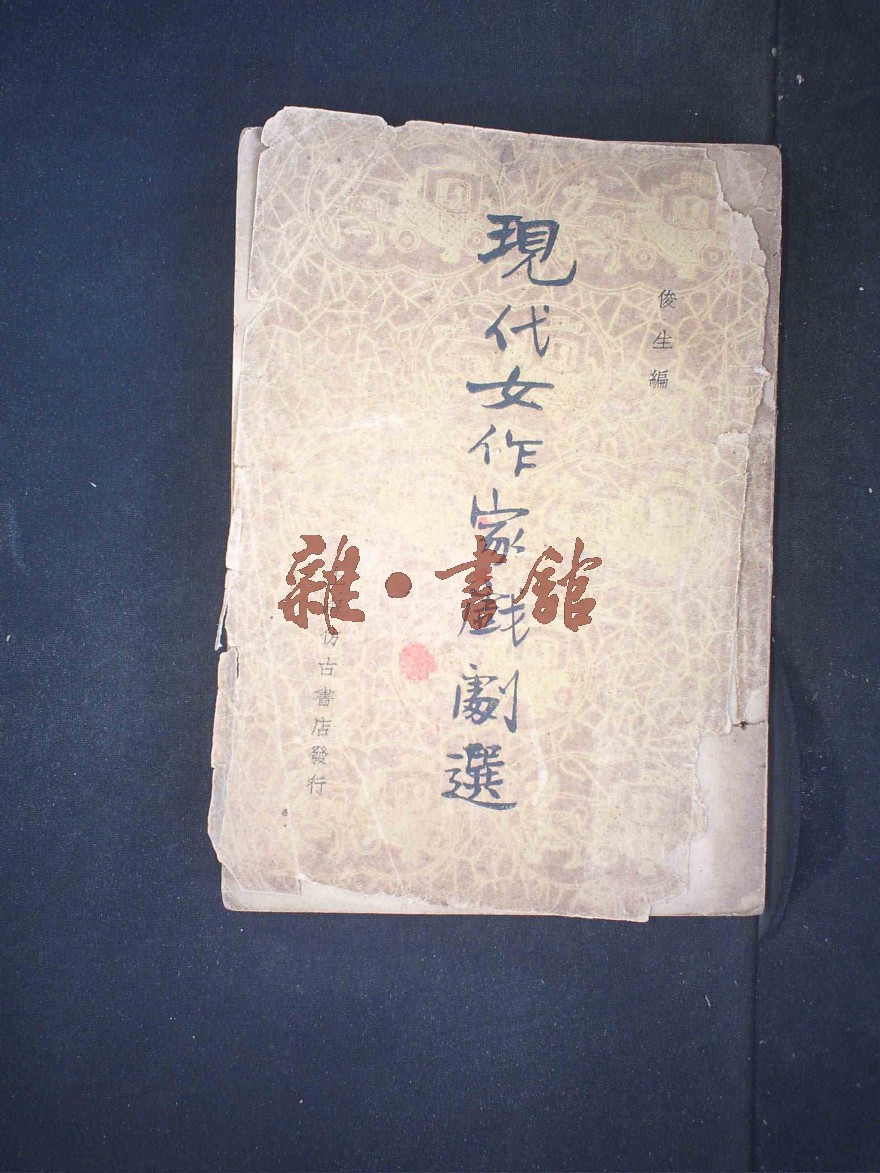 俊生編
現代女作家戲劇選
仿古書店發行
雜·書舘